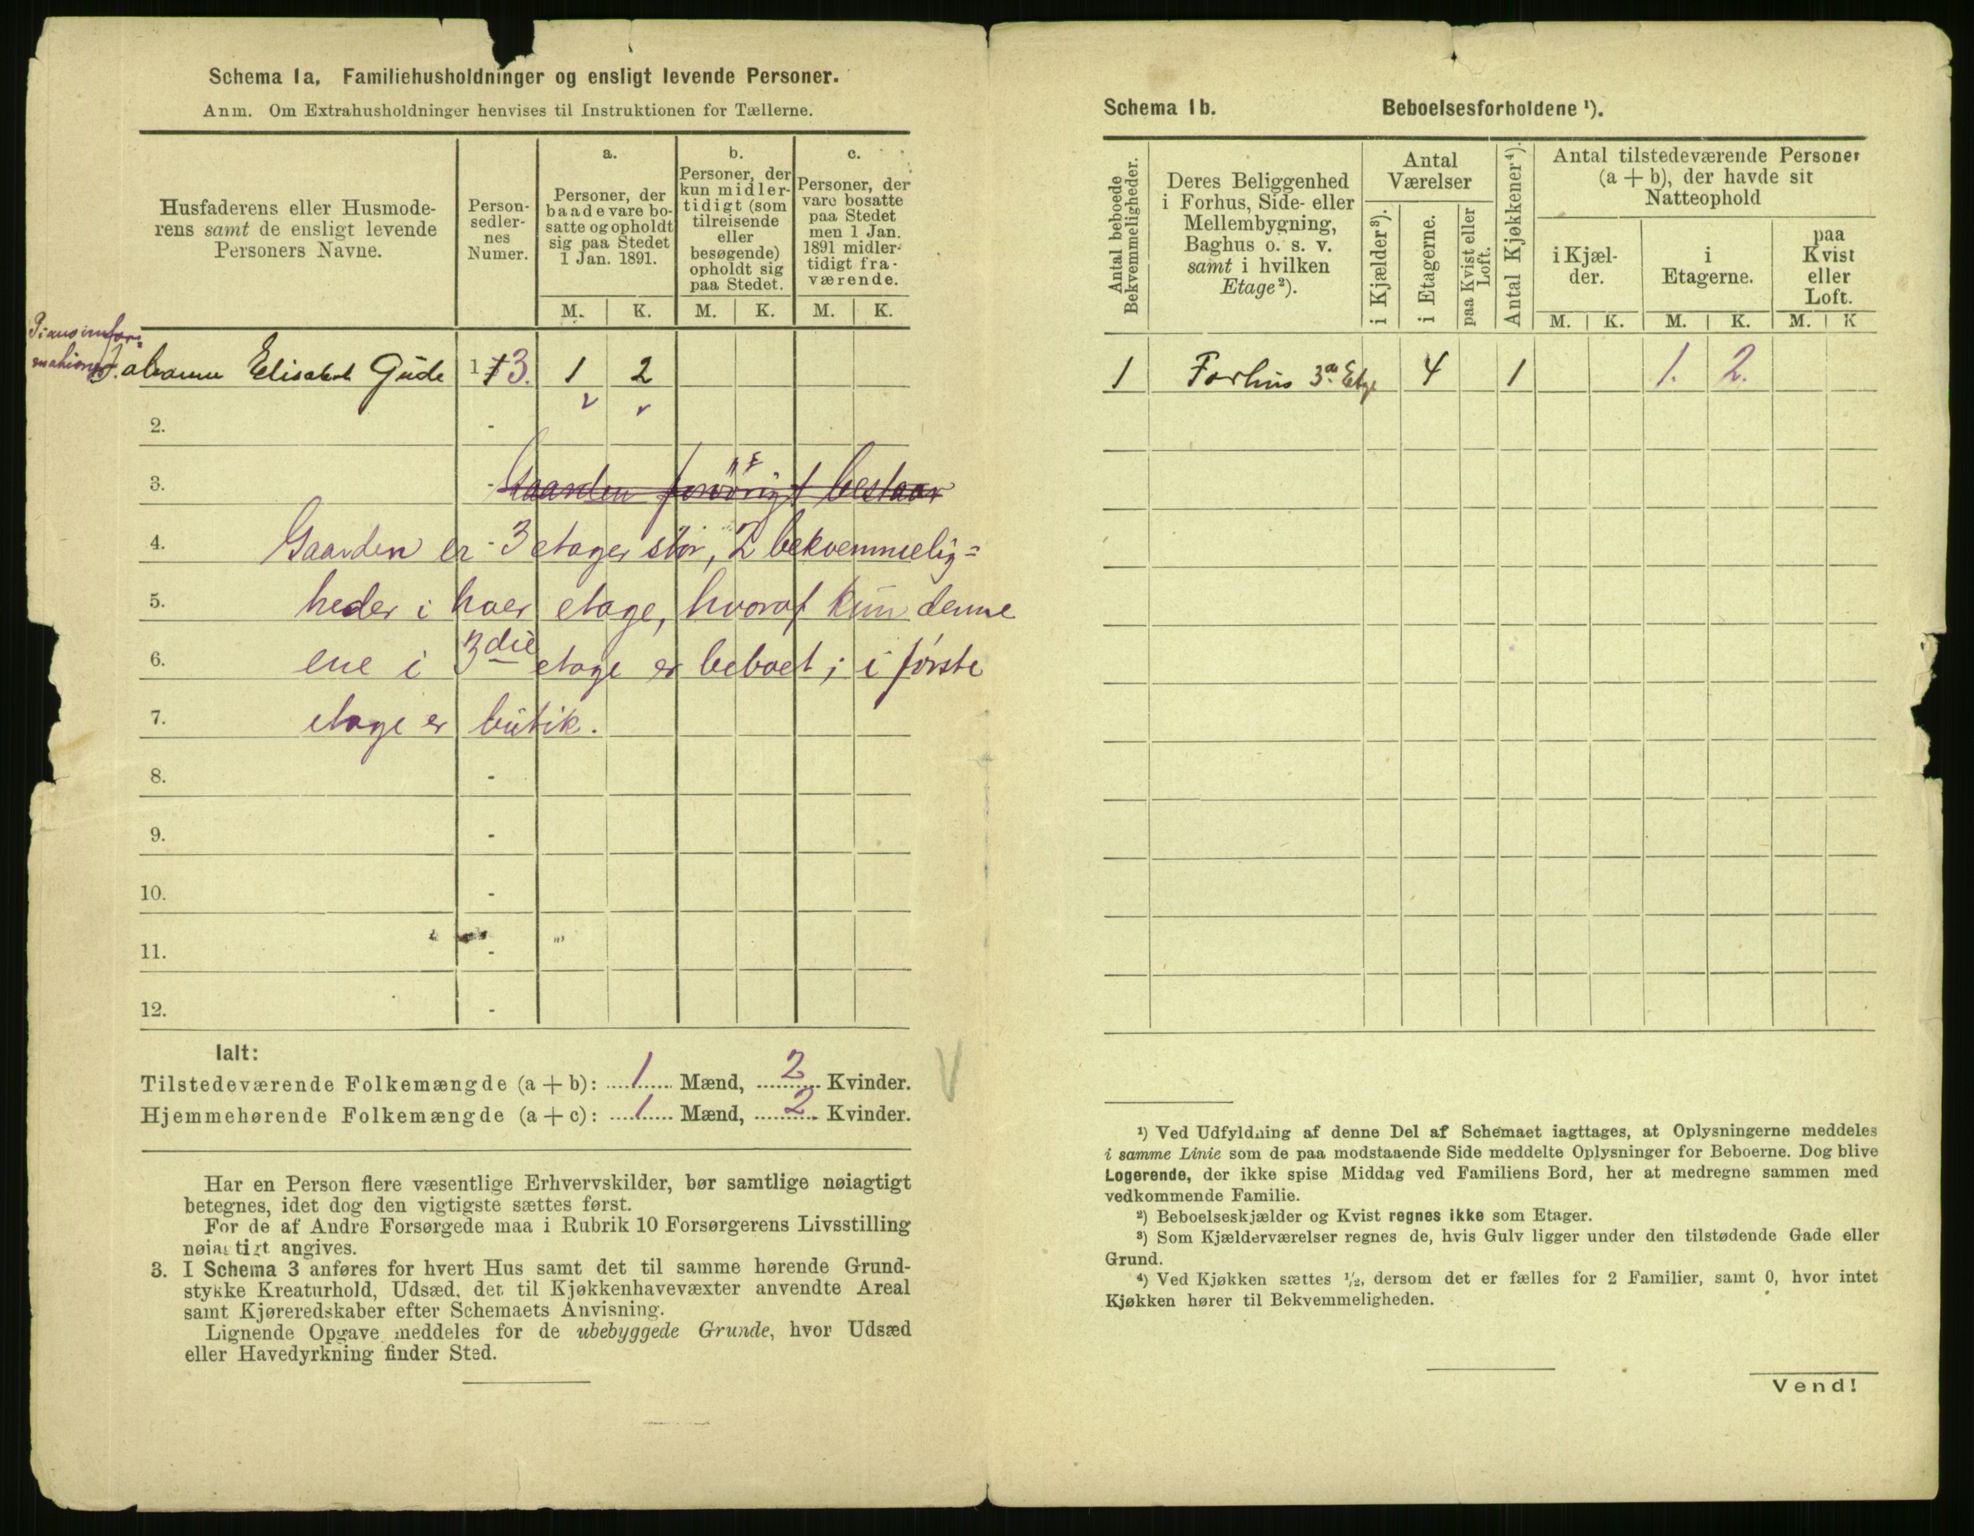 Schema 1a. Familiehusholdninger og ensligt levende Personer.
Anm. Om Extrahusholdninger henvises til Instruktionen for Tællerne.
Husfaderens eller Husmode-
rens samt de ensligt levende
Personers Navne.
Person-
sedler-
nes
Numer.
a.
Personer, der
baade vare bo-
satte og opholdt
sig paa Stedet
1 Jan. 1891.
b.
Personer, der
kun midler-
tidigt (som
tilreisende
eller
besøgende)
opholdt sig
paa Stedet.
c.
Personer, der
vare bosatte
paa Stedet
men 1 Jan.
1891 midler-
tidigt fra-
værende.
M. K. M. K. M. K.
Johanne Elisabet Gude 1 - 3. 1 2
2. -
3. - Gaarden forøvrigt bestaar
4. Gaarden er - 3 etager stor, 2 bekvemmelig=
5. heder i hver etage, hvoraf kun denne
6. ene i 3die etage er beboet; i første
7. etage er butik.
8. -
9. -
10. -
11. -
12. -
Ialt:
Tilstedeværende Folkemængde (a + b): 1 Mænd, 2 Kvinder.
Hjemmehørende Folkemængde (a + c): 1 Mænd, 2 Kvinder.
Har en Person flere væsentlige Erhvervskilder, bør samtlige nøiagtigt
betegnes, idet dog den vigtigste sættes først.
For de af Andre Forsørgede maa i Rubrik 10 Forsørgerens Livsstilling
nøiagtigt angives.
3. I Schema 3 anføres for hvert Hus samt det til samme hørende Grund-
stykke Kreaturhold, Udsæd, det til Kjøkkenhavevæxter anvendte Areal
samt Kjøreredskaber efter Schemaets Anvisning.
Lignende Opgave meddeles for de ubebyggede Grunde, hvor Udsæd
eller Havedyrkning finder Sted.
Schema 1b. Beboelsesforholdene ¹).
Antal beboede
Bekvemmeligheder.
Deres Beliggenhed
i Forhus, Side- eller
Mellembygning,
Baghus o. s. v.
samt i hvilken
Etage²).
Antal
Værelser
i Kjælder³).
i Etagerne.
paa Kvist eller
Loft.
Antal Kjøkkener⁴).
Antal tilstedeværende Personer
(a + b), der havde sit
Natteophold
i Kjæl-
der.
i
Etagerne.
paa
Kvist
eller
Loft.
M. K. M. K. M. K
1 Forhus 3die Etge 4 1 1. 2.
¹) Ved Udfyldning af denne Del af Schemaet iagttages, at Oplysningerne meddeles
i samme Linie som de paa modstaaende Side meddelte Oplysninger for Beboerne. Dog blive
Logerende, der ikke spise Middag ved Familiens Bord, her at medregne sammen med
vedkommende Familie.
²) Beboelseskjælder og Kvist regnes ikke som Etager.
³) Som Kjælderværelser regnes de, hvis Gulv ligger under den tilstødende Gade eller
Grund.
⁴) Ved Kjøkken sættes ½, dersom det er fælles for 2 Familier, samt 0, hvor intet
Kjøkken hører til Bekvemmeligheden.
Vend!